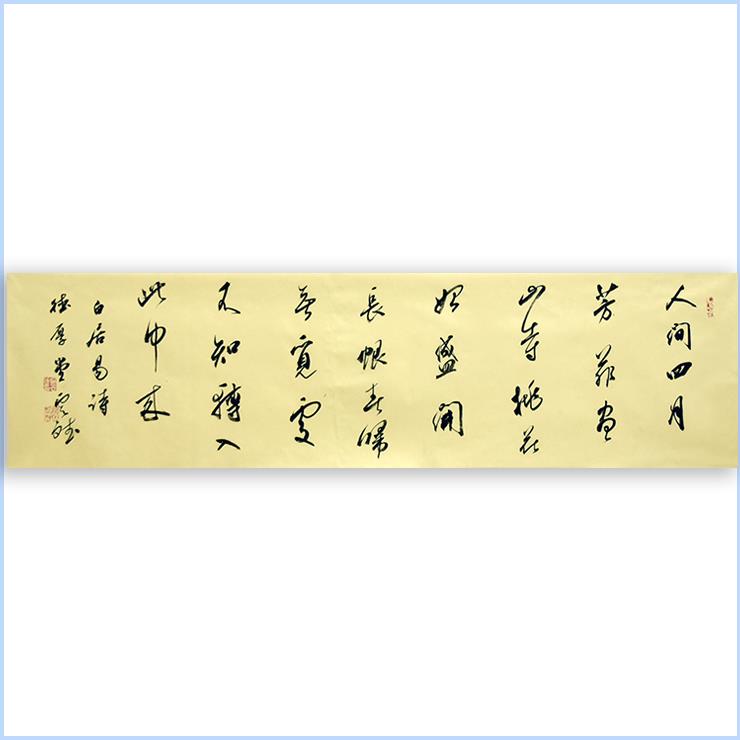 人間四月
芳菲盡
山寺桃花
始盛開
長恨春歸
無覓處
不知轉入
此中來
白居易詩
德厚堂